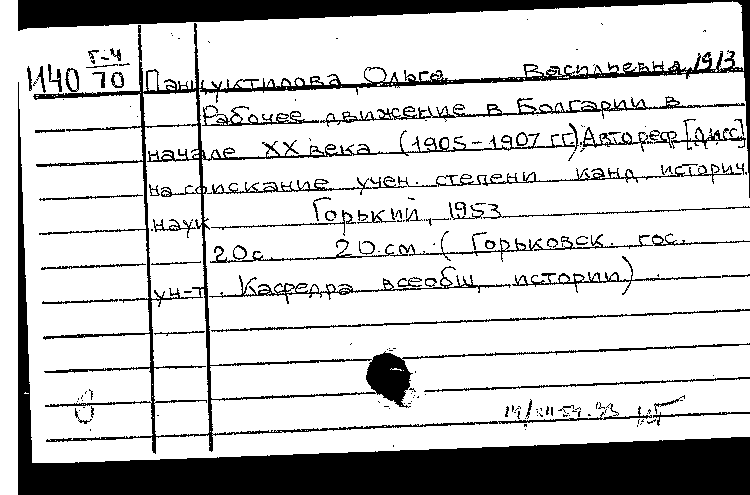 И40 Г-4/70 Ольга Васильевна, 1913
Рабочее движение в Болгарии в
начале XX века. (1905-1907 гг.) Автореф [дисс]
на соискание учен. степени канд. историч.
наук. Горький, 1953
20 с. 20 см. (Горьковск. гос.
ун-т. Кафедра всеобщ. истории).